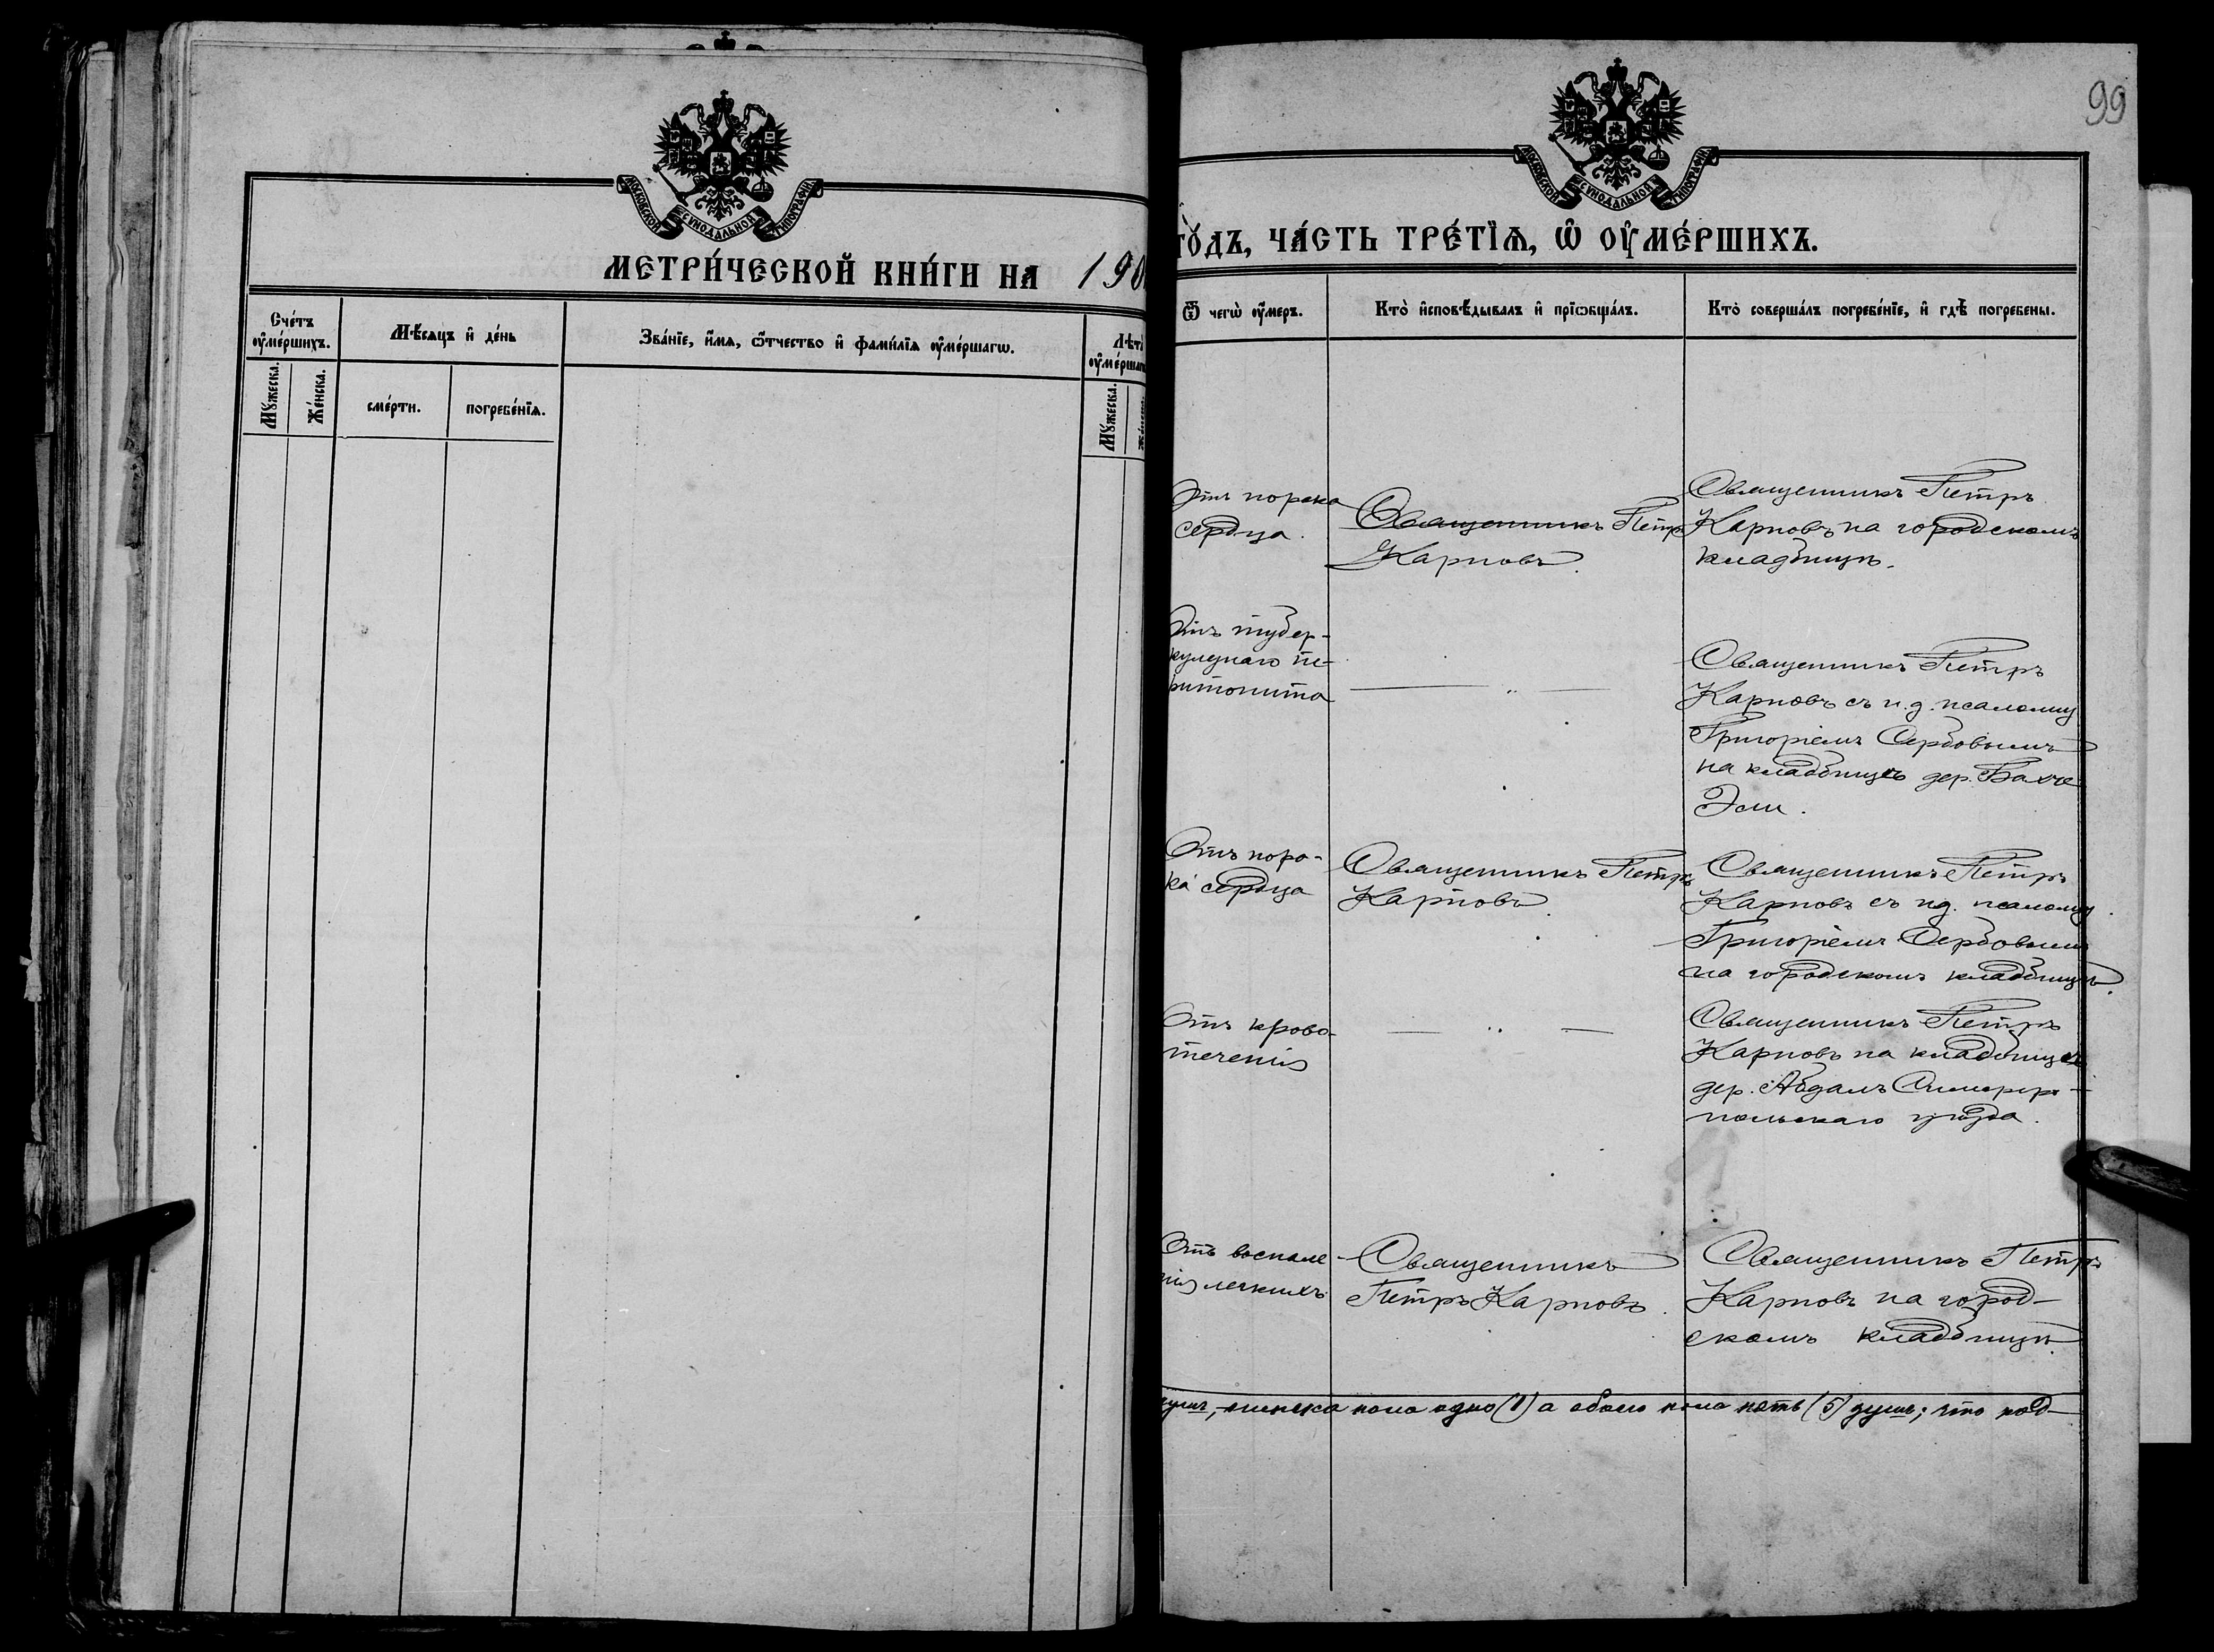 МОСКОВСКОЙ СУНОДАЛЬНОЙ ТИПОГРАФІИ
МЕТРИ́ЧЕСКОЙ КНИ́ГИ НА 190
Сче́тъ ᲂу҆ме́ршихъ.
Мꙋ́жеска.
Же́нска.
Мѣ́сѧцъ и҆ де́нь
сме́рти.
погребе́нїѧ.
Зва́нїе, и҆́мѧ, ѻ҆́тчество и҆ фами́лїѧ ᲂу҆ме́ршагѡ.
Лѣт
ᲂу҆ме́ршаг
Мꙋ́жеска.
99
МОСКОВСКОЙ СУНОДАЛЬНОЙ ТИПОГРАФІИ
ГО́ДЪ, ЧА́СТЬ ТРЕ́ТЇѦ, Ѡ҆ ОУ҆МЕ́РШИХЪ.
Ѿ чегѡ̀ ᲂу҆́меръ.
Кто̀ и҆сповѣ́дывалъ и҆ прїѡбща́лъ.
Кто̀ соверша́лъ погребе́нїе, и҆ гдѣ̀ погребены.
Отъ порока
сердца.
Священникъ Петръ
Карповъ.
Священникъ Петръ
Карповъ на городскомъ
кладбищѣ.
Отъ тубер-
кулезнаго пе-
ритонита
— „ —
Священникъ Петръ
Карповъ съ и.д. псаломщ
Григоріемъ Сербовымъ
на кладбищѣ дер. Бахче
Эли.
Отъ поро-
ка сердца
Священникъ Петръ
Карповъ.
Священникъ Петръ
Карповъ съ и.д. псаломщ.
Григоріемъ Сербовымъ
на городскомъ кладбищѣ.
Отъ крово-
теченія
— „ —
Священникъ Петръ
Карповъ на кладбищѣ
дер. Абдалъ Симферо-
польскаго уѣзда.
Отъ воспале-
нія легкихъ
Священникъ
Петръ Карповъ.
Священникъ Петръ
Карповъ на город-
скомъ кладбищѣ.
душъ, женска пола одно (1) а обоего пола пять (5) душъ; что под-